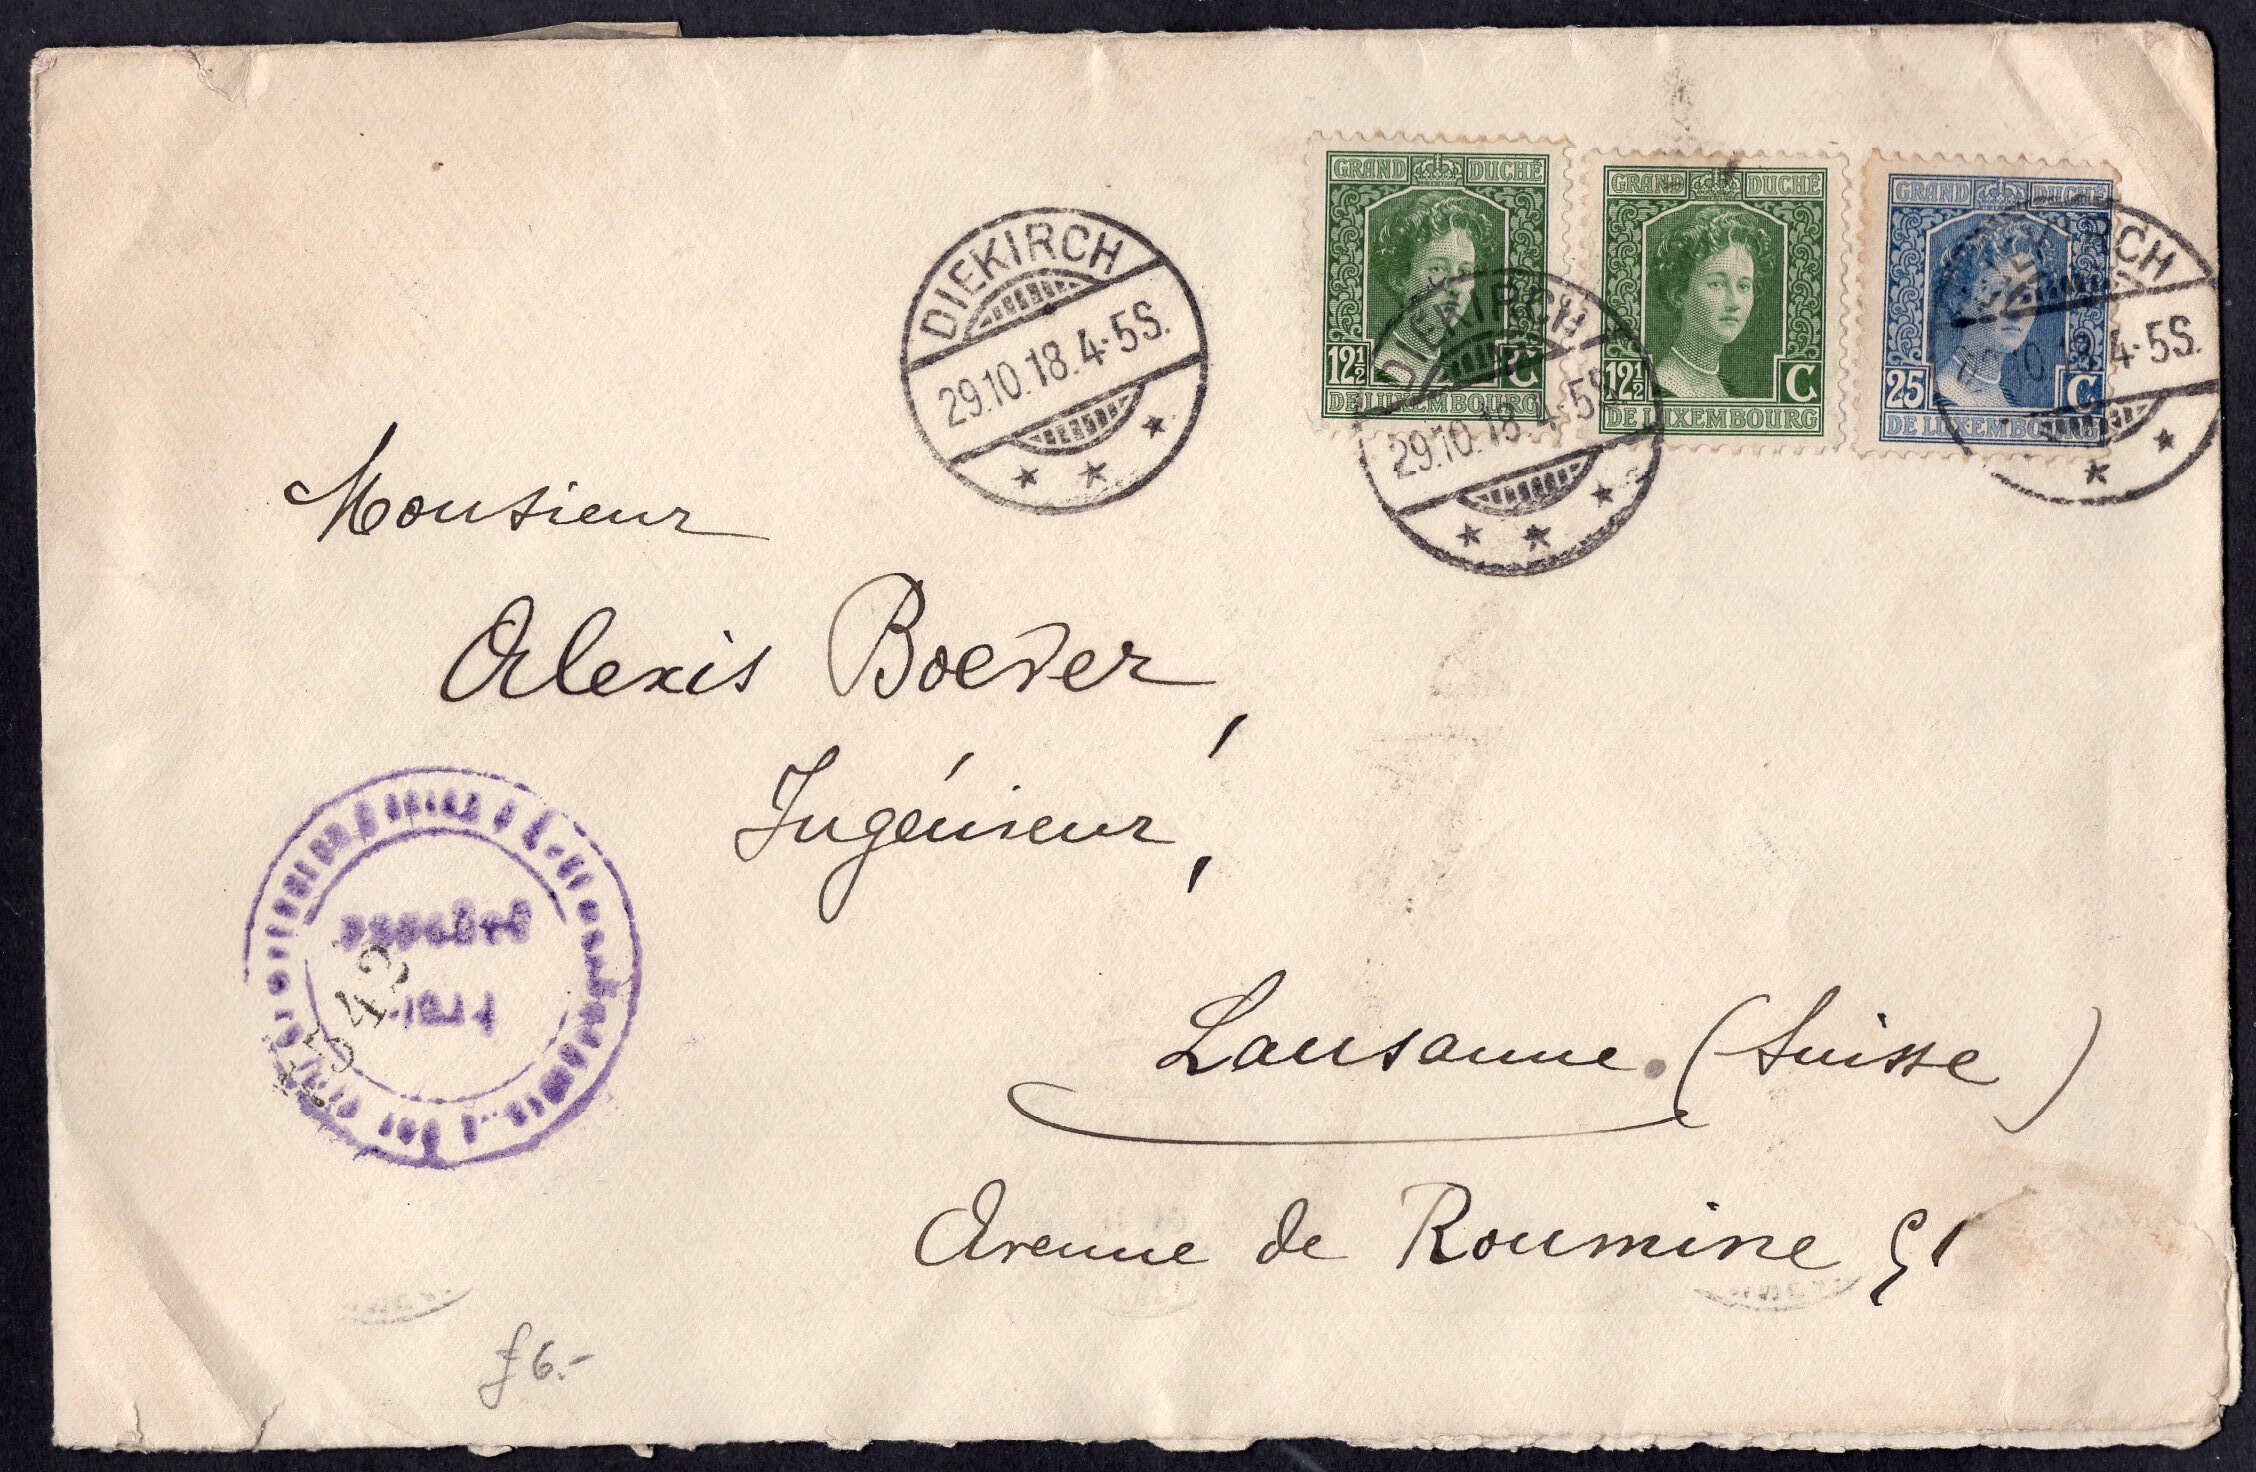 GRAND DUCHÉ
12½ C
DE LUXEMBOURG
GRAND DUCHÉ
12½ C
DE LUXEMBOURG
GRAND DUCHÉ
25 C
DE LUXEMBOURG
DIEKIRCH
29.10.18.4-5S.
DIEKIRCH
29.10.18.4-5S
DIEKIRCH
29.10.18.4-5S.
Monsieur
Alexis Boever,
Ingénieur,
Lausanne. (Suisse)
Avenue de Roumine 51
£6.-